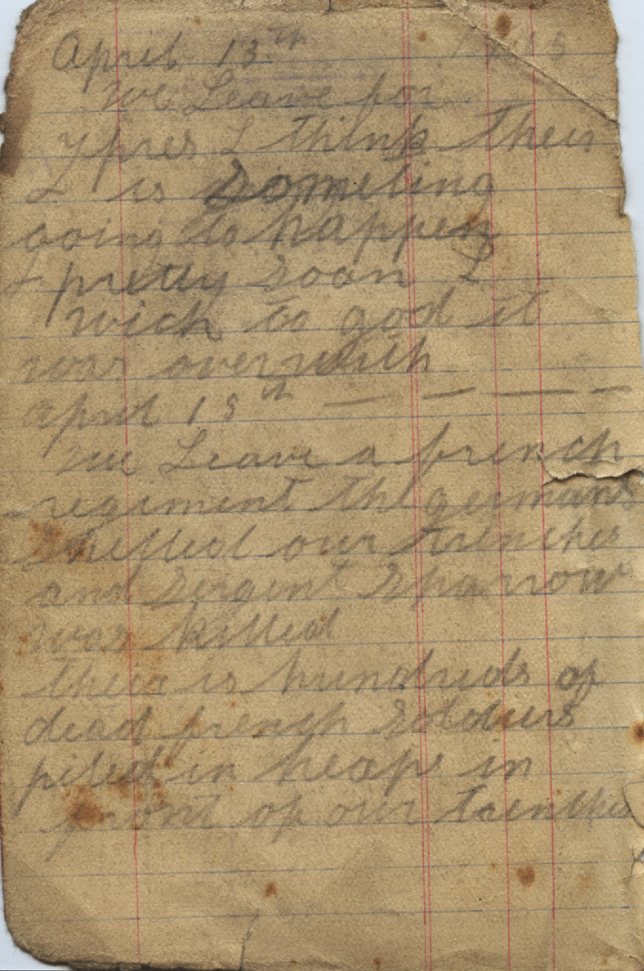 April 13th 1915
We Leave for
Ypres I think theur
I is someting
going to happen
I pretty soon I
wich to god it
was over with
April 15th — — — —
We Leave a french
regiment the germans
shelled our trenches
and Sergent Sparrow
was killed
their is hundreds of
dead french Soldiers
piled in heaps in
front of our trenches